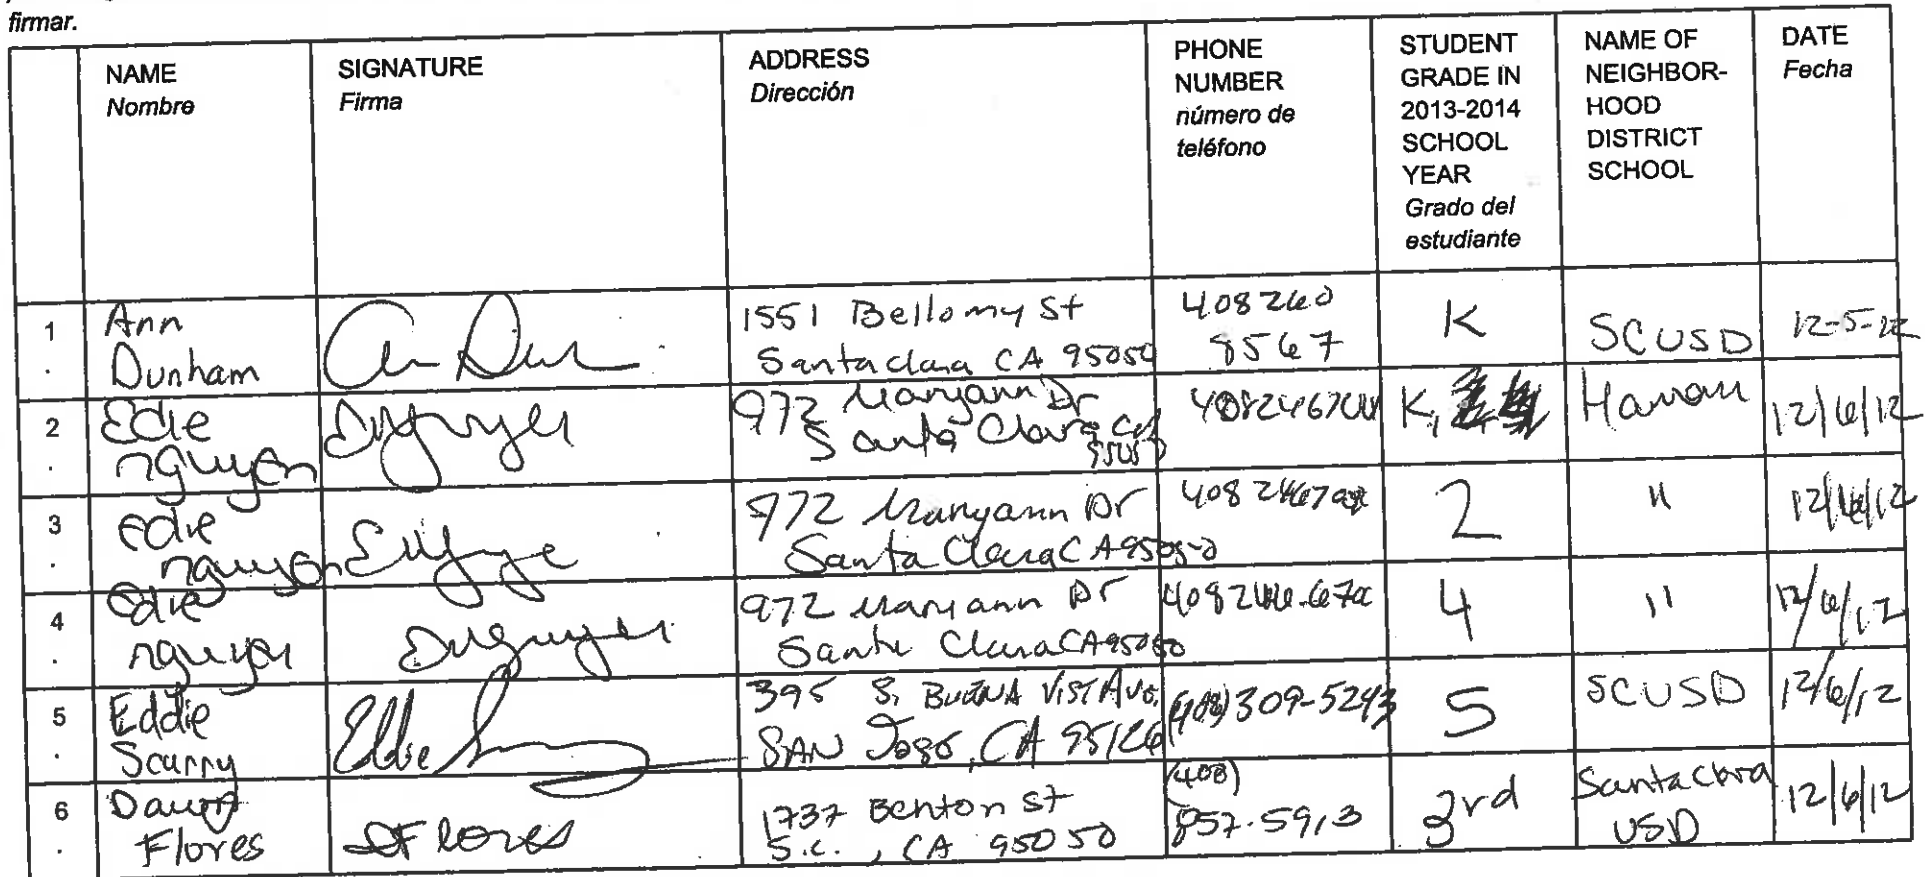 firmar.
NAME
Nombre
SIGNATURE
Firma
ADDRESS
Dirección
PHONE
NUMBER
número de
teléfono
STUDENT
GRADE IN
2013-2014
SCHOOL
YEAR
Grado del
estudiante
NAME OF
NEIGHBOR-
HOOD
DISTRICT
SCHOOL
DATE
Fecha
1
.
Ann
Dunham
1551 Bellomy St
Santa Clara CA 95050
408 260
8567
K
SCUSD
12-5-12
2
.
Edie
nguyen
972 Maryann Dr
Santa Clara Ca
95050
K,
12/6/12
3
.
Edie
nguyen
972 Maryann Dr
Santa Clara CA 95050
408
2
"
12/6/12
4
.
Edie
nguyen
972 Maryann Dr
Santa Clara CA 95050
408
4
"
12/6/12
5
.
Eddie
Scurry
Eddie
395 S. BUENA VIST AVE.
SAN JOSE, CA 95126
(408) 309-5243
5
SCUSD
12/6/12
6
.
Flores
DFlores
1737 Benton St
S.C., CA 95050
(408)
857-5913
3rd
Santa Clara
USD
12/6/12